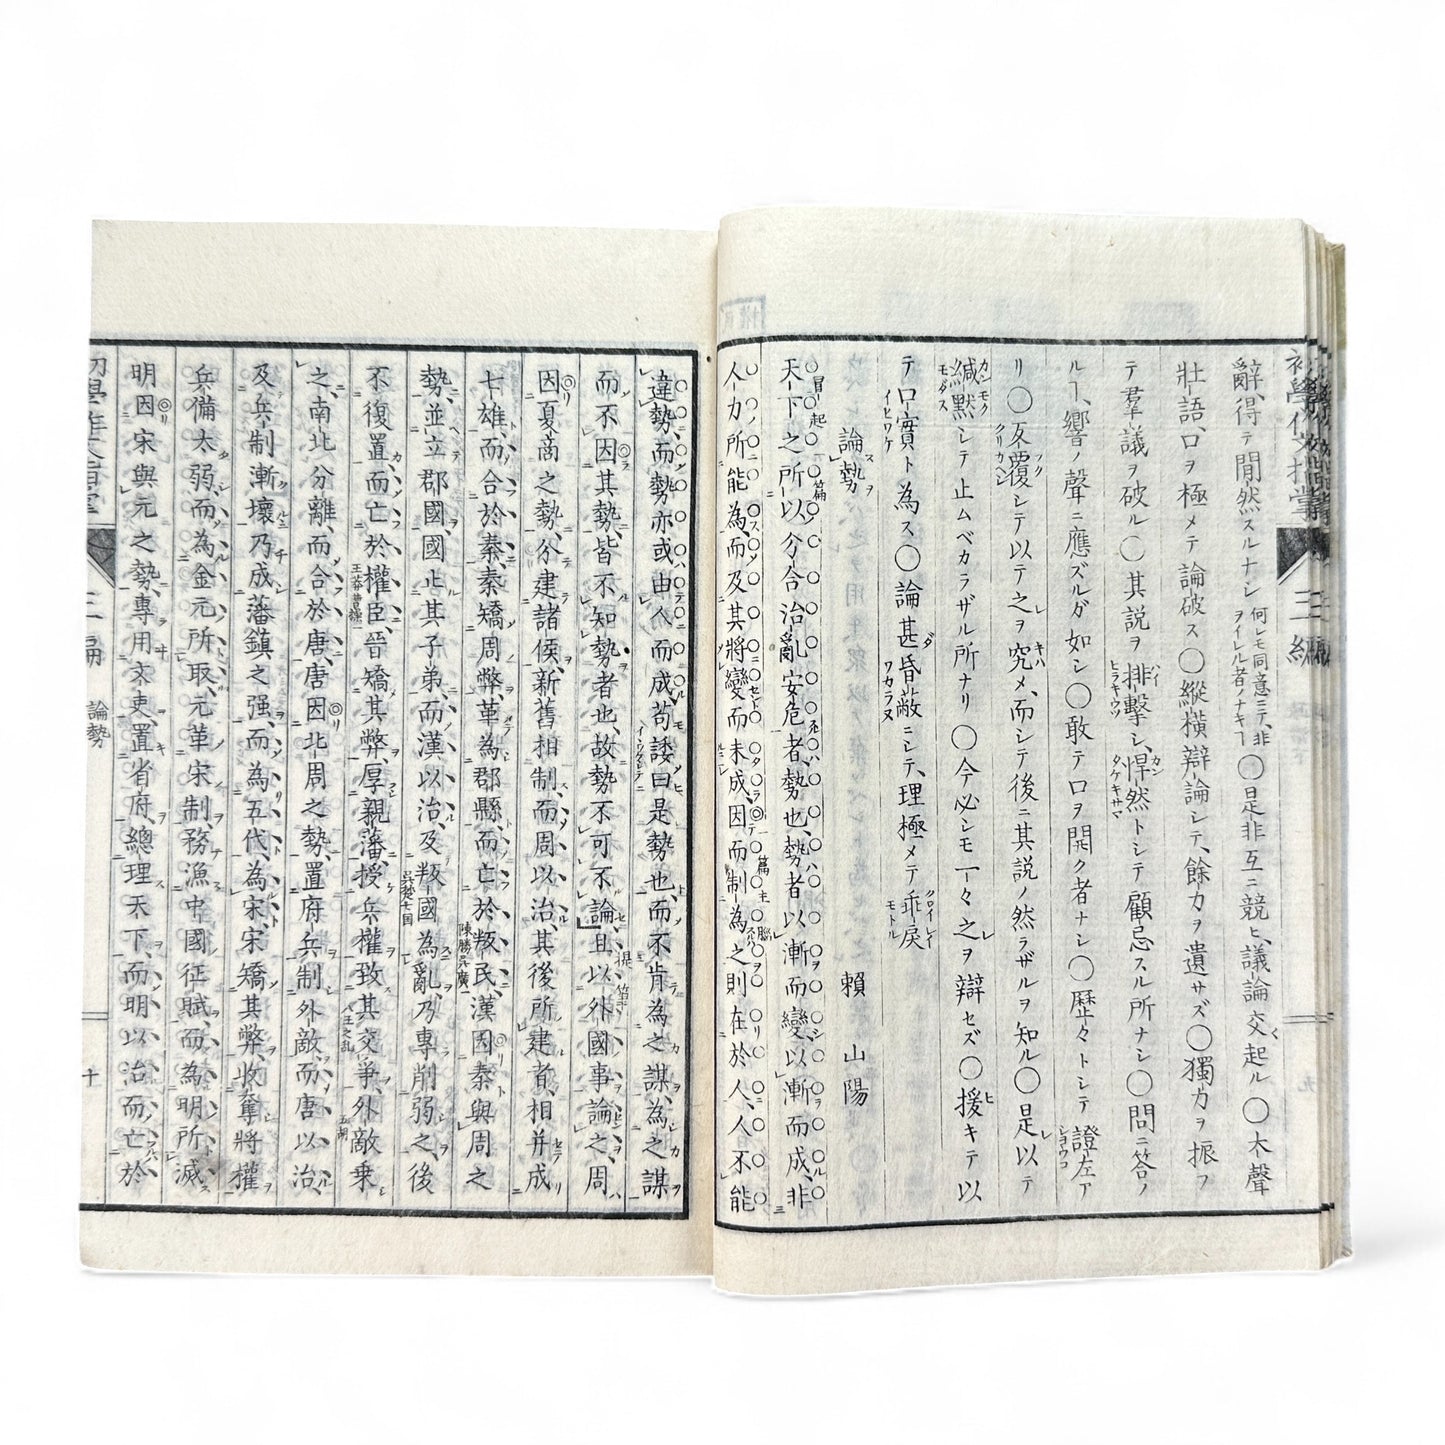 辭、得テ間然スルナシ何レモ同意ニテ、非ヲイレル者ノナキヿ〇是非互ニ競ヒ、議論交起ル〇大聲
壯語、口ヲ極メテ論破ス〇縱横辯論シテ、餘力ヲ遺サズ〇獨力ヲ振フ
テ羣議ヲ破ル〇其説ヲ排擊シ、悍然トシテ顧忌スル所ナシ〇問ニ答ノ
ルヿ、響ノ聲ニ應ズルガ如シ〇敢テロヲ開ク者ナシ〇歴々トシテ證左ア
リ〇反覆シテ以テ之ヲ究メ、而シテ後ニ其説ノ然ラザルヲ知ル〇是以テ
緘默シテ止ムベカラザル所ナリ〇今必シモ一々之ヲ辯セズ〇援キテ以
テ口實ト為ス〇論甚昏蔽ニシテ、理極メテ乖戻
論勢 賴山陽
天下之所以分合治亂安危者勢也、勢者以漸而變以漸而成、非
人力所能為、而及其將變而未成、因而制為之則在於人、人不能
違勢、而勢亦或由人而成、苟諉曰是勢也、而不肯為之謀、為之謀
而不因其勢、皆不知勢者也、故勢不可不論、且以外國事論之、周
因夏商之勢、分建諸侯、新舊相制而周以治、其後所建者、相并成
七雄、而合於秦、秦矯周弊、革為郡縣、而亡於叛民、漢因秦與周之
勢、並立郡國、國止其子弟、而漢以治、及叛國為亂、乃專削弱之、後
不復置、而亡於權臣、晉矯其弊、厚親藩、授兵權、致其交爭、外敵乗
之、南北分離、而合於唐、唐因北周之勢、置府兵、制外敵、而唐以治、
及兵制漸壞、乃成藩鎮之强、而為五代、為宋、宋矯其弊、收奪將權
兵備太弱、而為金元所取、元革宋制、務漁中國征賦、而為明所滅
明因宋與元之勢、專用文吏、置省府、總理天下、而明以治、而亡於
初學作文指掌 三編 九
三編 論勢 十